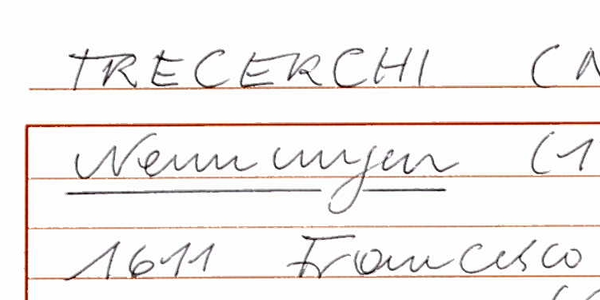 TRECERCHI (N
Nennungen (1
1611 Francesco